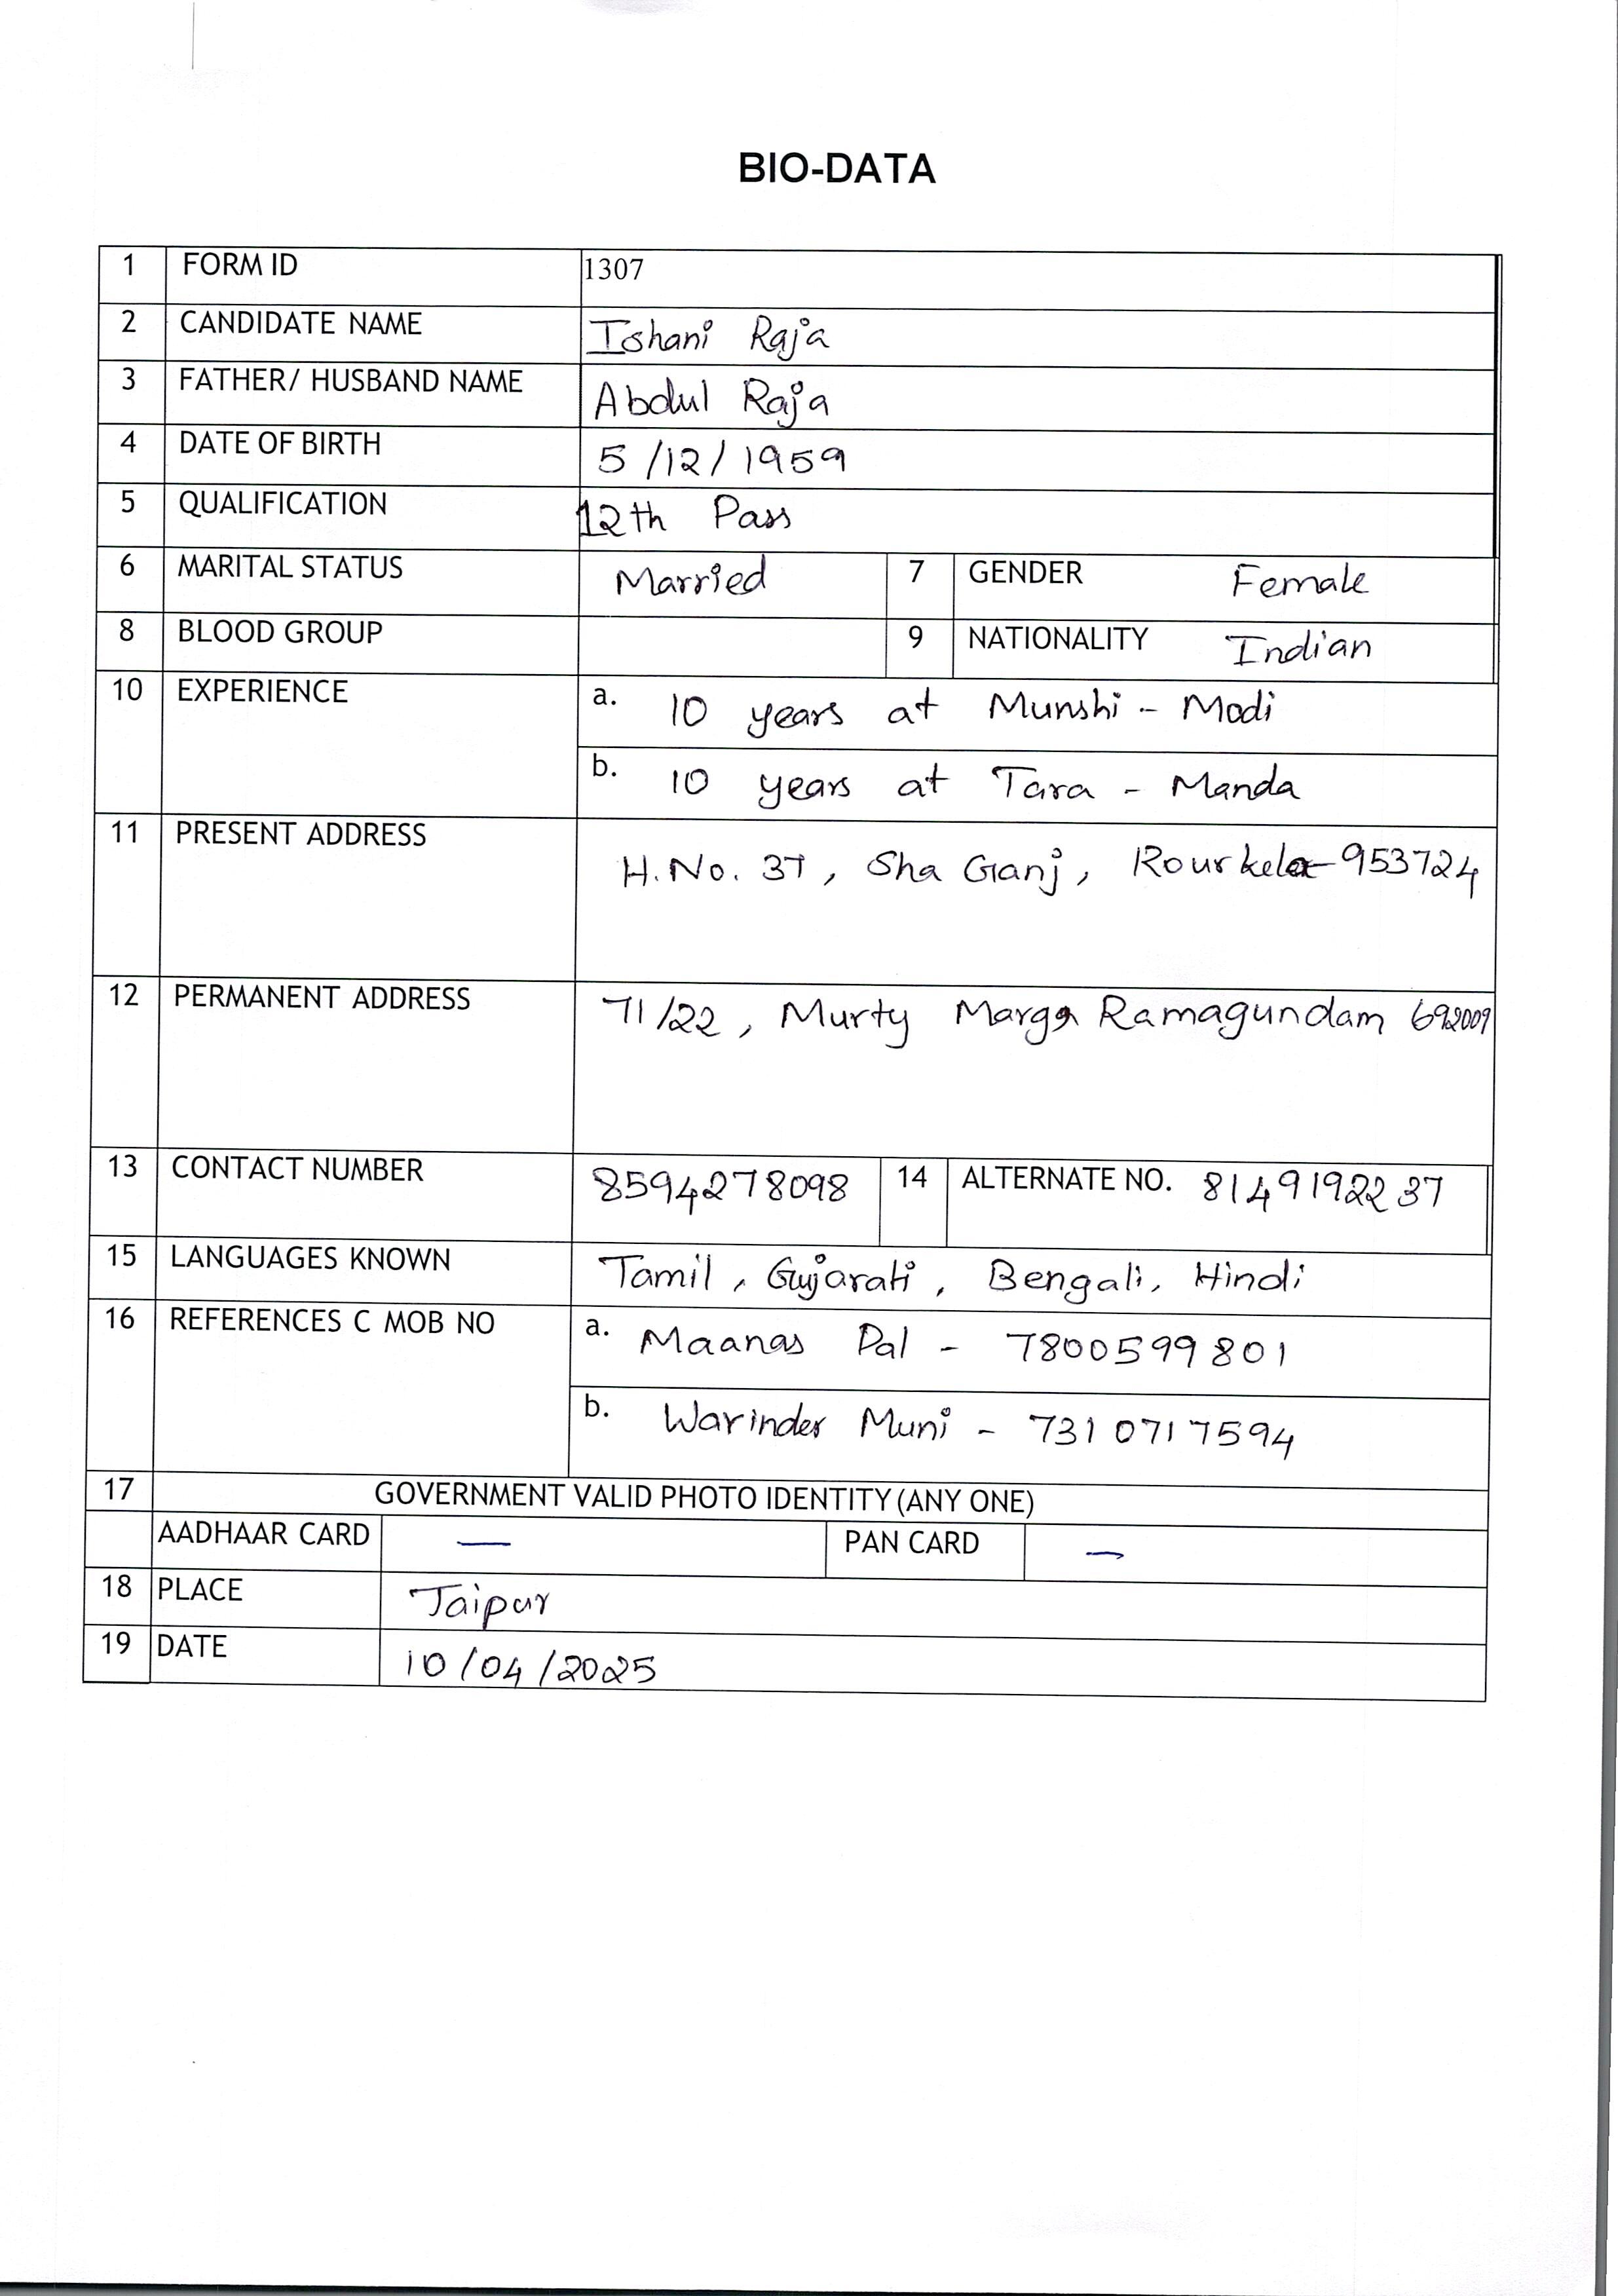 BIO-DATA
1 FORM ID 1307
2 CANDIDATE NAME Ishani Raja
3 FATHER/ HUSBAND NAME Abdul Raja
4 DATE OF BIRTH 5/12/1959
5 QUALIFICATION 12th Pass
6 MARITAL STATUS Married 7 GENDER Female
8 BLOOD GROUP 9 NATIONALITY Indian
10 EXPERIENCE a. 10 years at Munshi - Modi
b. 10 years at Tara - Manda
11 PRESENT ADDRESS H.No. 37, Sha Ganj, Rourkela-953724
12 PERMANENT ADDRESS 71/22, Murty Marg, Ramagundam 692009
13 CONTACT NUMBER 8594278098 14 ALTERNATE NO. 8149192237
15 LANGUAGES KNOWN Tamil, Gujarati, Bengali, Hindi
16 REFERENCES C MOB NO a. Maanas Pal - 7800599801
b. Warinder Muni - 7310717594
17 GOVERNMENT VALID PHOTO IDENTITY (ANY ONE)
AADHAAR CARD — PAN CARD —
18 PLACE Jaipur
19 DATE 10/04/2025